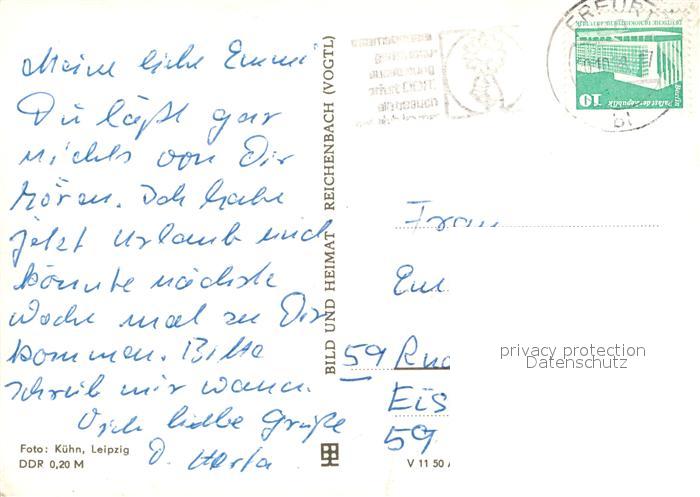 Meine liebe Emmi
Du läßt gar
nichts von Dir
hören. Ich habe
jetzt Urlaub und
könnte nächste
Woche mal zu Dir
kommen. Bitte
schreib mir wann.
Viele liebe Grüße
D. Herta
Foto: Kühn, Leipzig
DDR 0,20 M
BILD UND HEIMAT REICHENBACH (VOGTL)
V 11 50
ERFURT
DEUTSCHE DEMOKRATISCHE REPUBLIK
Palast der Republik
Berlin
10
Frau
Em
59 Rud
Eis
59
privacy protection
Datenschutz